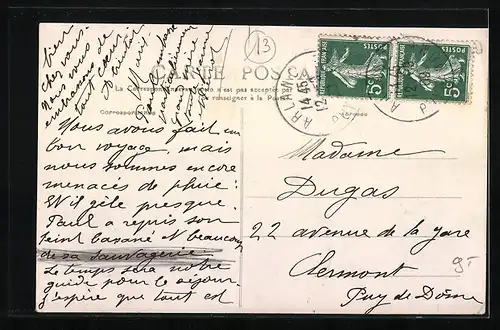 bien
chez vous.
Nous vous
embrassons de
tout cœur.
A bientôt
13
CARTE POSTALE
La Correspondance n'est pas acceptée par
se renseigner à la Poste
Correspondance
Adresse
POSTES
POSTES
5c
5c
14-45
12
Nous avons fait un
bon voyage, mais
nous sommes encore
menacés de pluie :
Et il gèle presque.
Paul a repris son
teint basané et beaucoup
de sa sauvagerie
Le temps sera notre
guide pour le séjour.
J'espère que tout est
Madame
Dugas
22 avenue de la gare
Clermont
Puy de Dôme
9-